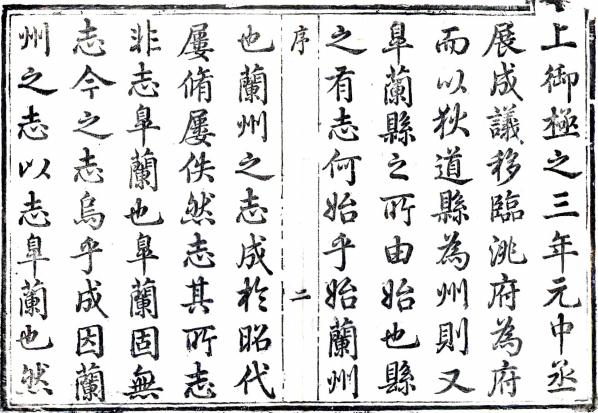 上御極之三年元中丞
展成議移臨洮府為府
而以狄道縣為州則又
皐蘭縣之所由始也縣
之有志何始乎始蘭州
序
二
也蘭州之志成於昭代
屢脩屢佚然志其所志
非志皐蘭也皐蘭固無
志今之志烏乎成因蘭
州之志以志皐蘭也然